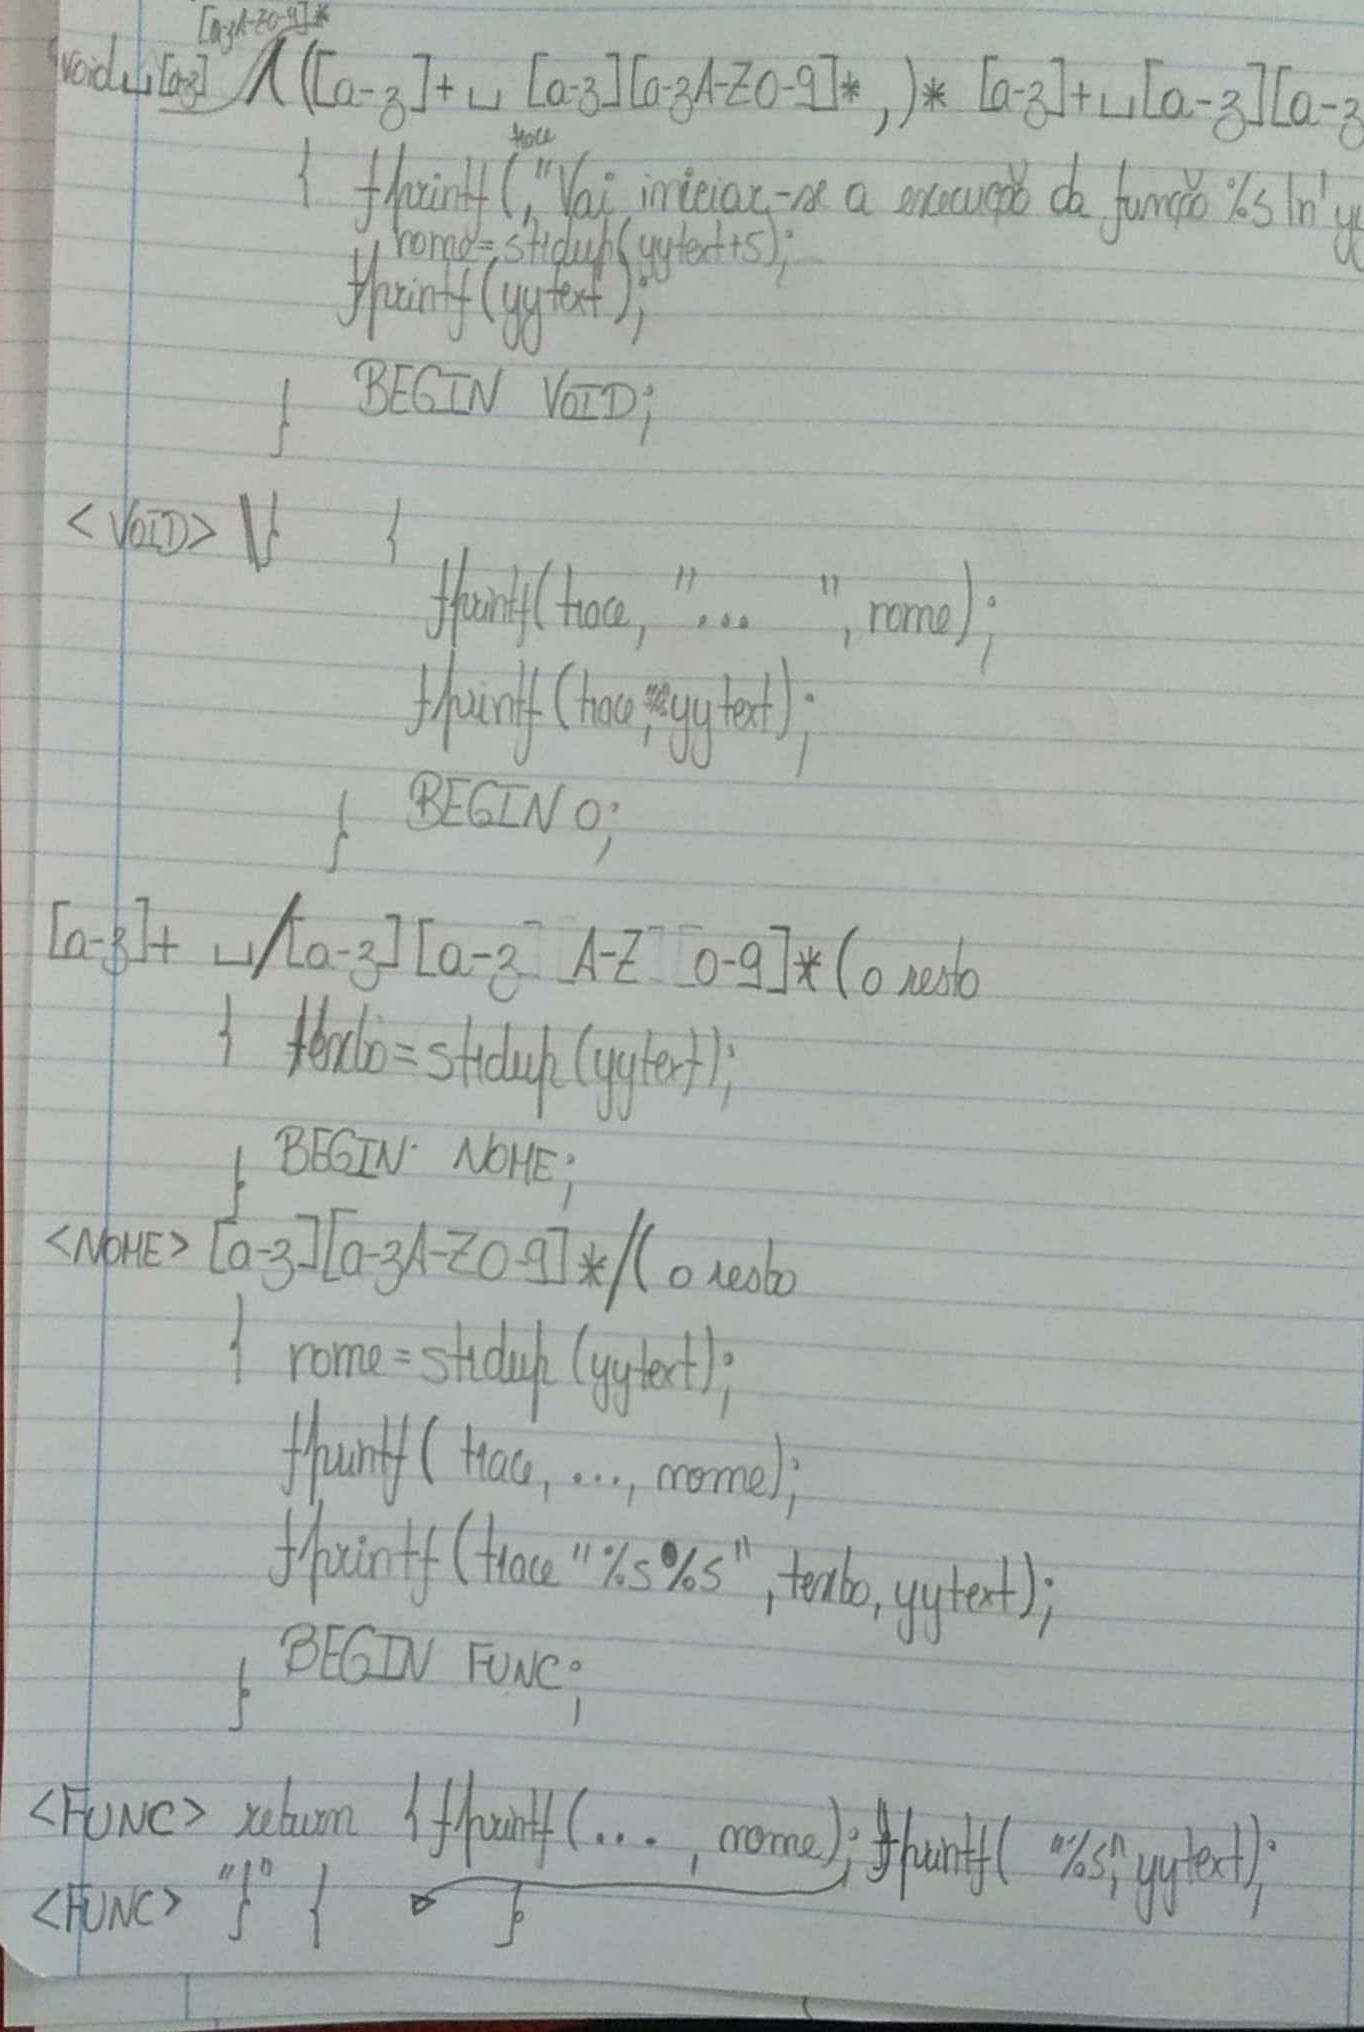 [a-zA-Z0-9]*
void␣[a-z] /\(([a-z]+␣[a-z][a-zA-Z0-9]*,)* [a-z]+␣[a-z][a-z
trace
{ fprintf(,"Vai iniciar-se a execução da função %s \n" yy
nome=strdup(yytext+5);
fprintf(yytext);
} BEGIN VOID;
<VOID> \} {
fprintf(trace, "... ", nome);
fprintf(trace,"%s"yytext);
} BEGIN 0;
[a-z]+ ␣/[a-z][a-z A-Z 0-9]*(o resto
{ texto=strdup(yytext);
} BEGIN NOME;
<NOME> [a-z][a-zA-Z0-9]*/( o resto
{ nome=strdup(yytext);
fprintf( trace, ..., nome);
fprintf(trace "%s%s", texto, yytext);
} BEGIN FUNC;
<FUNC> return { fprintf(... , nome); fprintf( "%s", yytext);
<FUNC> "}" { }